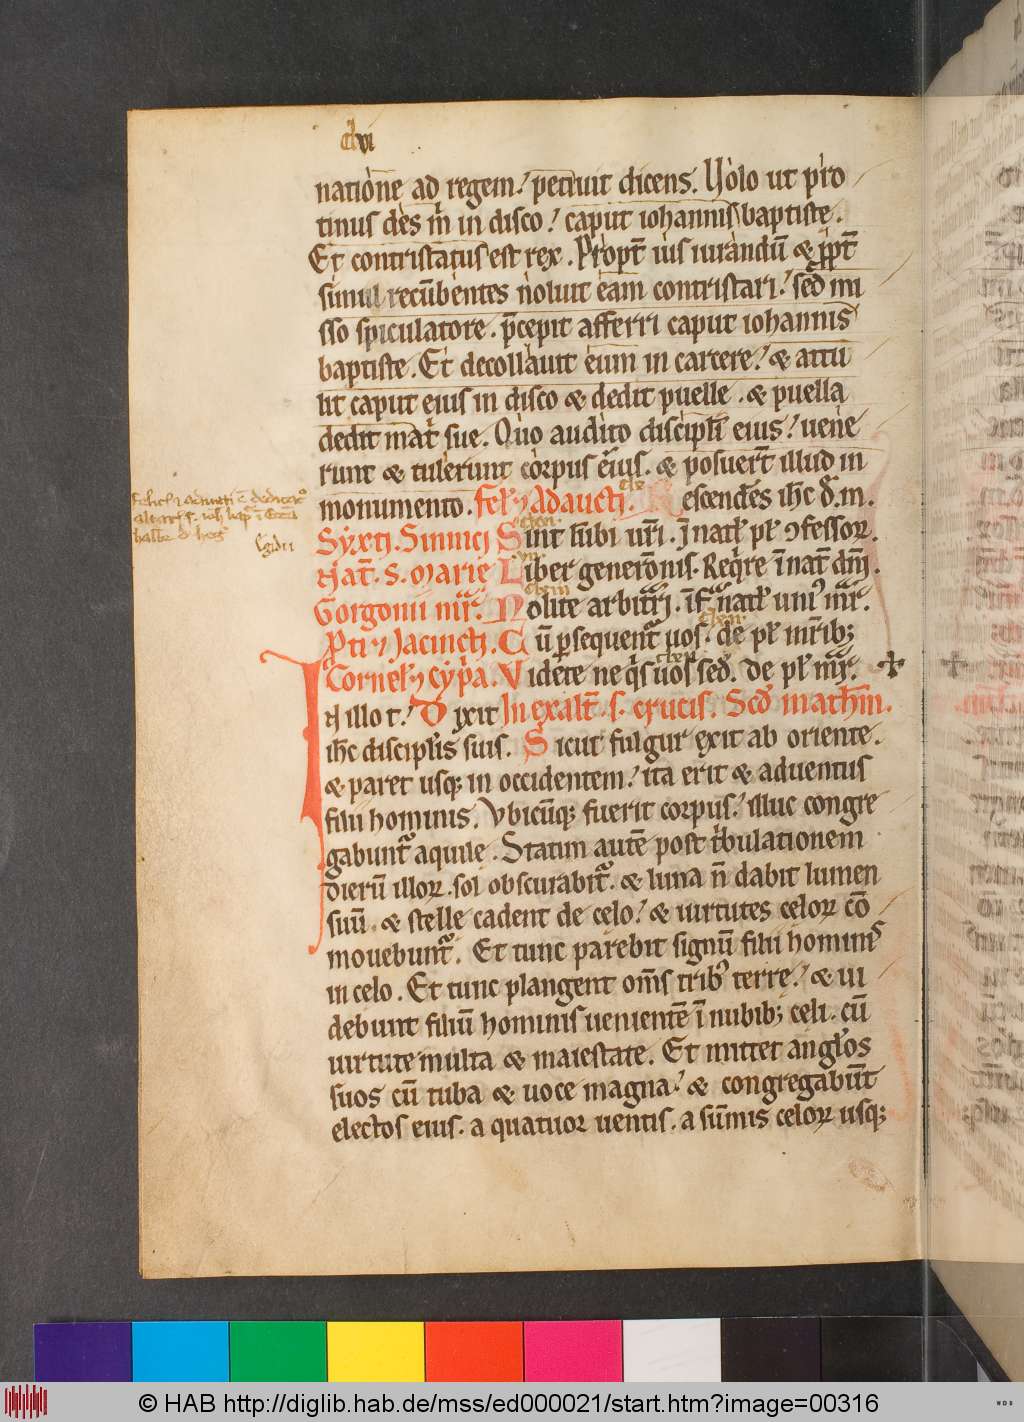 clvi
natione ad regem. petiuit dicens. Uolo ut pro
tinus des m̄ in disco! caput iohannis baptiste.
Et contristatus est rex. Propt̄ ius iurandū & ꝓpt̄
simul recūbentes noluit eam contristari! sed mi
sso spiculatore. p̄cepit afferri caput iohannis
baptiste. Et decollauit eum in carcere! & attu
lit caput eius in disco & dedit puelle. & puella
dedit mat̄ sue. Quo audito discipl̄i eius! uene
runt & tulerunt corpus eius. & posuert̄ illud in
monumento. Fel. ⁊ Adaucti. escendēs ih̄c d. m.
Syxti. Sinnici Sint lūbi ur̄i. In nat̄ pl̄ ↄfessoꝝ.
Nat̄. S. Marie Liber generōnis. Reqͥre ī nat̄ dn̄i.
Gorgonii mr̄. Nolite arbitrari. īfͣ nat̄ uniꝰ mr̄.
Pti ⁊ Jacincti. Cū ꝑsequent᷑ uos. de pl̄ mr̄ibꝫ
Cornel. ⁊ cypͥa. Videte ne qͥs uos sed. De pl̄ mr̄.
N illo t. Dixit In exalt̄. s. crucis. Scd̄ math̄m.
ih̄c discipl̄is suis. Sicut fulgur exit ab oriente.
& paret usqꝫ in occidentem! ita erit & aduentus
filii hominis. Vbicūqꝫ fuerit corpus! illuc congre
gabunt᷑ aquile. Statim autē post tͥbulationem
dierū illoꝝ. sol obscurabit᷑. & luna n̄ dabit lumen
suū. & stelle cadent de celo! & uirtutes celoꝝ cō
mouebunt᷑. Et tunc parebit signū filii hominis
in celo. Et tunc plangent om̄s tribꝰ terre! & ui
debunt filiū hominis uenientē ī nubibꝫ celi. cū
uirtute multa & maiestate. Et mittet anglos
suos cū tuba & uoce magna! & congregabūt
electos eius. a quatuor uentis. a sūmis celoꝝ usqꝫ
© HAB http://diglib.hab.de/mss/ed000021/start.htm?image=00316